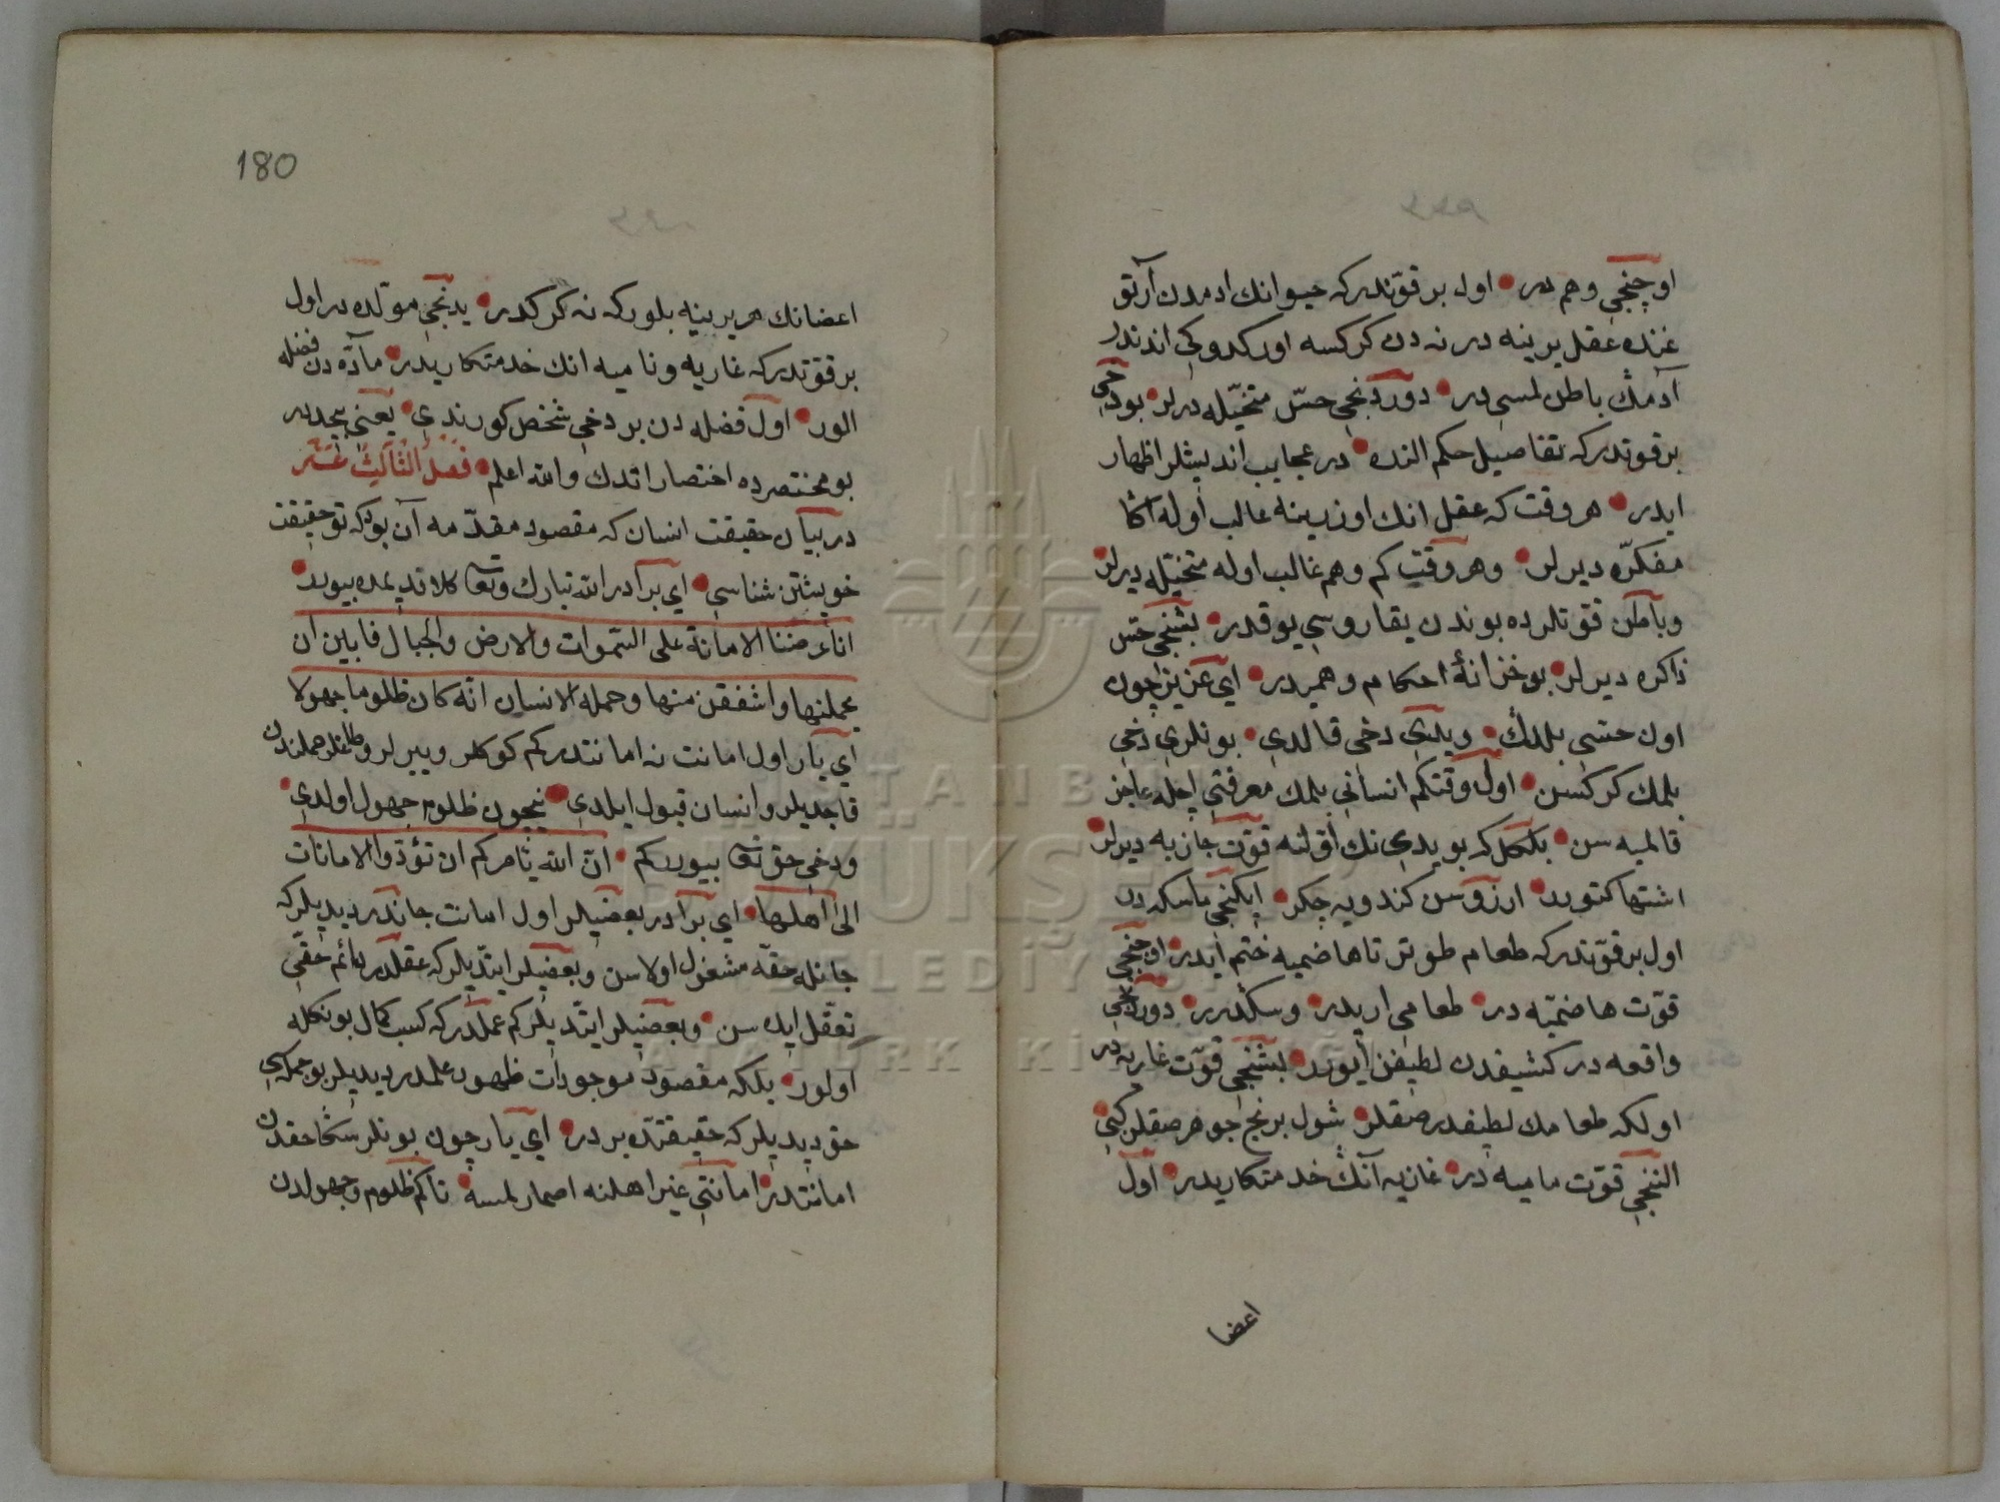 اوچنجی وهم در اول بر قوتدر كه حیوانك ادمدن آرتو
غنده عقل یرینه در نه دن كركسه اوركدوكی اندندر
آدمك باطن لمسی در دوردنجی حس متخیله درلر بو دخی
بر قوتدر كه تفاصیل حكم النده در عجایب اندیشلر اظهار
ایدر هر وقت كه عقل انك اوزرینه غالب اوله اكا
مفكره دیرلر وهر وقت كم وهم غالب اوله متخیله دیرلر
وباطن قوتلرده بوندن یقاروسی یوقدر بشنجی حس
ذاكره دیرلر بو خزانهٔ احكام وهمیدر ای عزیز چون
اون حسی بلدك ویدی دخی قالدی بونلری دخی
بلمك كركسن اول وقتكم انسانی بلمك معرفتی ایچله عاجز
قالمیه سن بلكل كه بو یدی نك اولنه قوت جازبه دیرلر
اشتها كتورر ارزوسن كندویه چكر ایكنجی ماسكه در
اول بر قوتدر كه طعام طوتر تا هاضمیه ختم ایدر اوچنجی
قوت هاضمیه در طعامی اریدر وسكدرر دوردنجی
واقعه در كشیفدن لطیفن ایورر بشنجی قوت غاریه در
اولكه طعامك لطیفدر صقلر شول برنج جوهر صقلر كبی
النجی قوت مامیه در غازیه آنك خدمتكاریدر اول
اعضا
180
اعضانك هر یرینه بلور كه نه كركدر یدنجی مولده در اول
بر قوتدر كه غاریه ونامیه انك خدمتكاریدر مآده دن فضله
الور اول فضله دن بر دخی شخص كورندی یعنی بچه در
بو مختصرده اختصار اتدك والله اعلم فصل الثالث عشر
در بیان حقیقت انسان كه مقصود مقدمه آن بود كه تو حقیقت
خویشتن شناسی ای برادر الله تبارك وتعا كلام قدیمده بیورر
انا عرضنا الامانة علی السموات والارض والجبال فابین ان
یحملنها واشفقن منها وحمله الانسان انه كان ظلوما جهولا
ای یار اول امانت نه امانتدر كم كوكلر ویرلر وطاغلر حملندن
قاچدیلر وانسان قبول ایلدی نیچون ظلوم جهول اولدی
ودخی حق تعا بیورر كم ان الله یامركم ان تؤدوا الامانات
الی اهلها ای برادر بعضیلر اول امانت جاندر دیدیلر كه
جانله حقه مشغول اولاسن وبعضیلر ایتدیلر كه عقلدر دائم حقی
تعقل ایده سن وبعضیلر ایتدیلر كم عملدر كه كسب كمال بونكله
اولور بلكه مقصود موجودات ظهور علمدر دیدیلر بو جمله كی
حق دیدیلر كه حقیقتده بردر ای یار چون بونلر سكا حقدن
امانتدر امانتی غیر اهلنه اصمارلمسه تا كم ظلوم وجهولدن